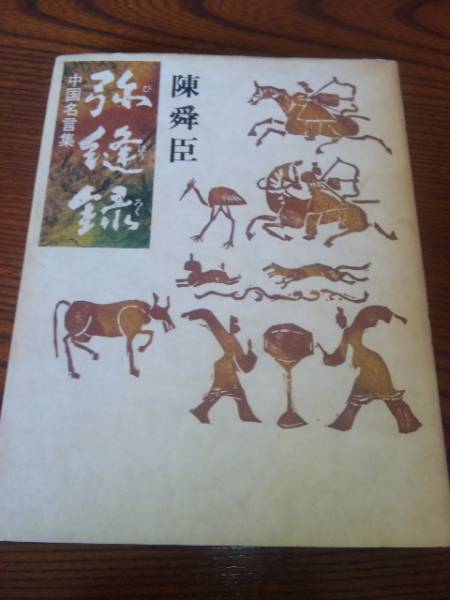 陳舜臣
弥縫録
びほうろく
中国名言集